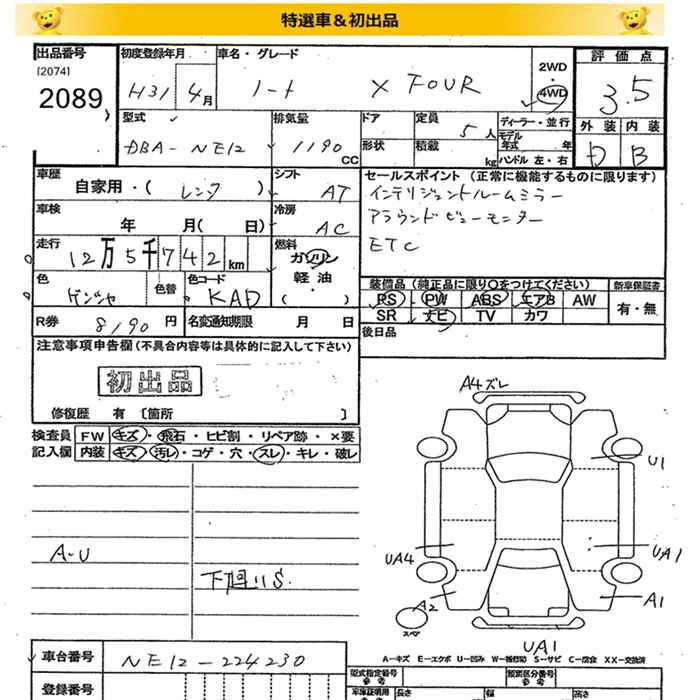 特選車&初出品
出品番号
[2074]
2089
初度登録年月
H31 4月
車名・グレード
ノート X FOUR
2WD・
4WD
評価点
3.5
外装 内装
D B
型式
DBA-NE12
排気量
1190 CC
ドア
定員
5人
形状
積載
kg
ディーラー・並行
モデル年式 年
ハンドル 左・右
車歴
自家用・(レンタ)
シフト
AT
セールスポイント (正常に機能するものに限ります)
インテリジェントルームミラー
アラウンドビューモニター
ETC
車検
年 月( 日)
冷房
AC
走行
12万5千742km
燃料
ガソリン
軽油
・( )
色
ゲンシャ
色替
色コード
KAD
装備品 (純正品に限り○をつけてください)
PS PW ABS エアB AW
SR ナビ TV カワ
新車保証書
有・無
R券 8190円
名変通知期限 月 日
後日品
注意事項申告欄 (不具合内容等は具体的に記入して下さい)
初出品
修復歴 有 [箇所 ]
検査員記入欄
FW キズ・飛石・ヒビ割・リペア跡・×要
内装 キズ・汚レ・コゲ・穴・スレ・キレ・破レ
A-U
下廻りS.
A4ズレ
U1
UA4
UA1
A2
A1
スペア
UA1
A-キズ E-エクボ U-凹み W-補修跡 S-サビ C-腐食 XX-交換済
車台番号
NE12-224230
登録番号
型式指定番号
参考
類別区分番号
参考
車庫証明用
長さ
幅
高さ